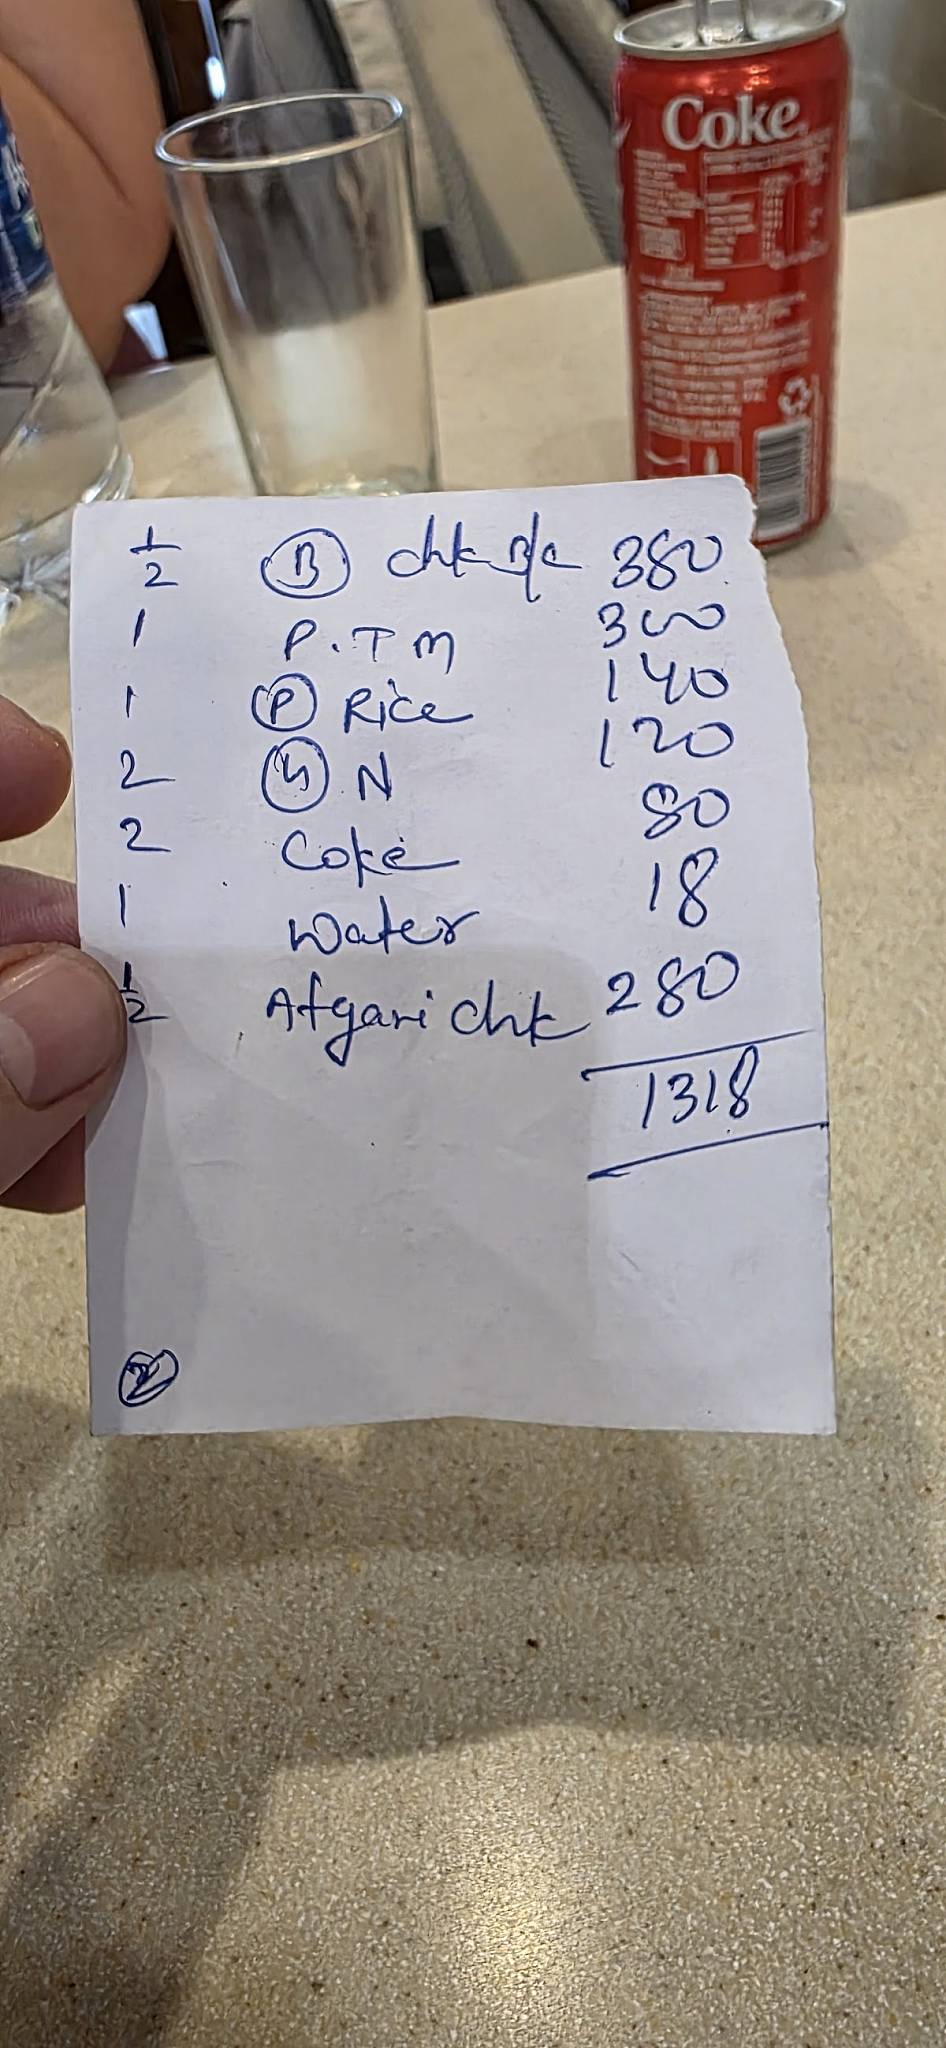 Coke
1/2 B chk B/C 380
1 P.T M 300
1 P Rice 140
2 4 N 120
2 Coke 80
1 Water 18
1/2 Afgari chk 280
1318
2